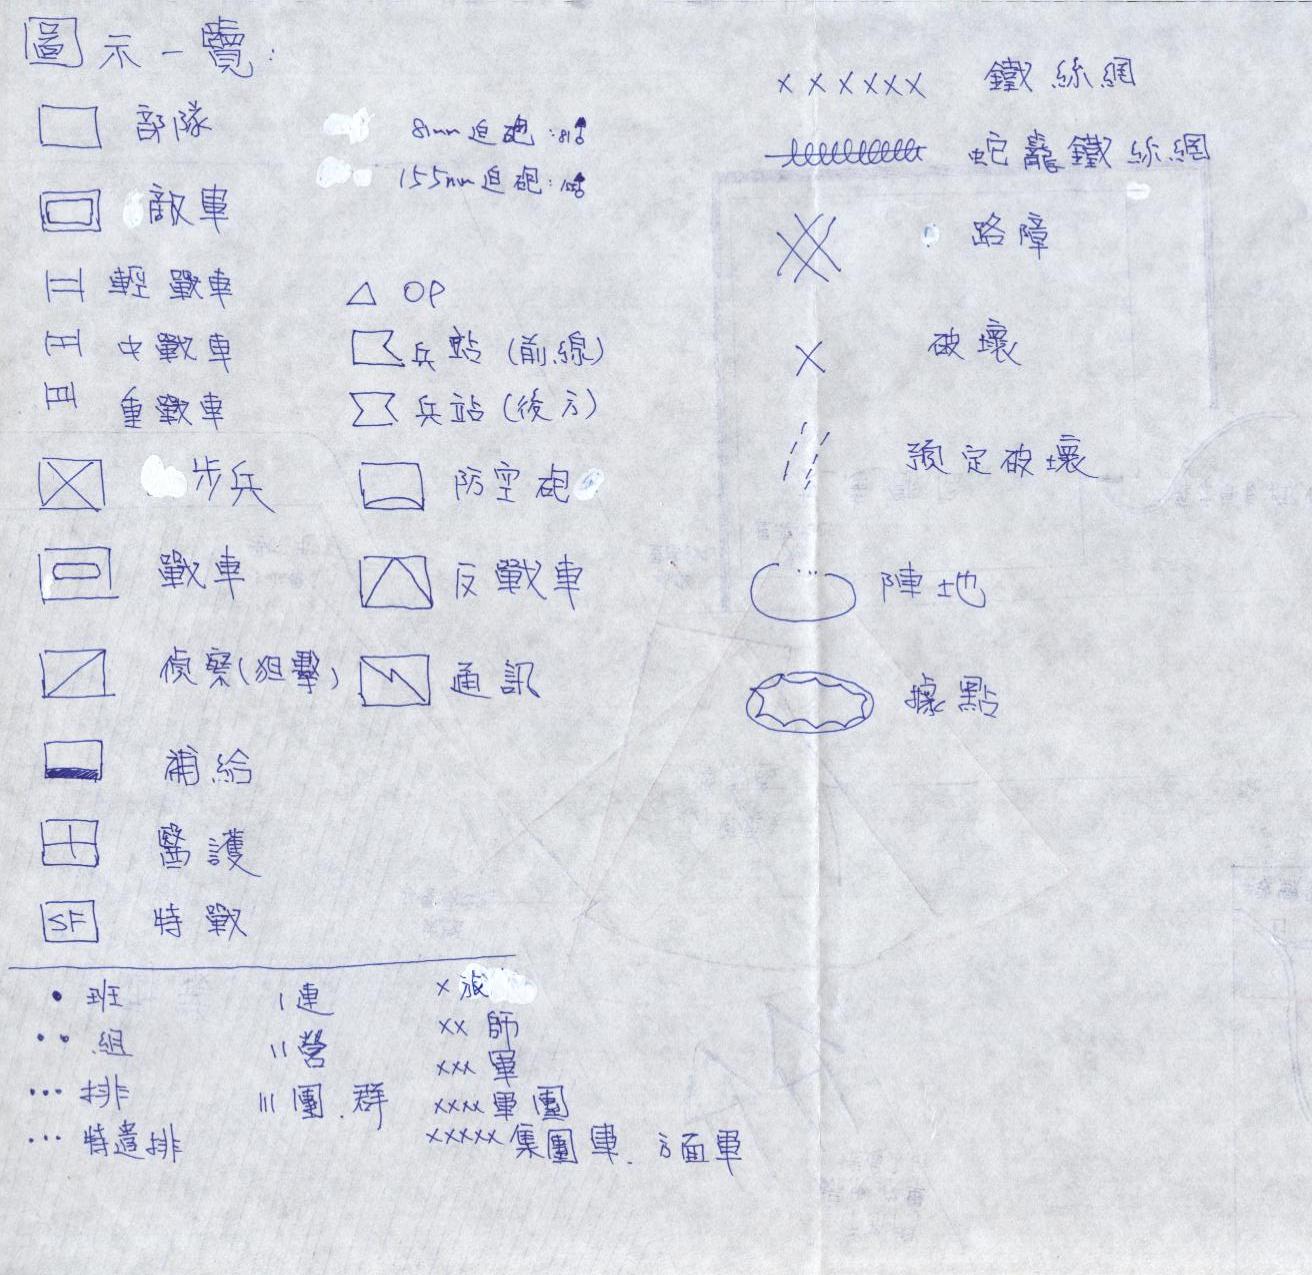 圖示一覽:
部隊
敵車
輕戰車
中戰車
重戰車
步兵
戰車
偵察(狙擊)
補給
醫護
SF 特戰
81mm迫砲:81
155mm迫砲:155
OP
兵站(前線)
兵站(後方)
防空砲
反戰車
通訊
xxxxxx 鐵絲網
蛇籠鐵絲網
路障
破壞
預定破壞
陣地
據點
• 班
•• 組
••• 排
••• 特遣排
I 連
II 營
III 團.群
x 旅
xx 師
xxx 軍
xxxx 軍團
xxxxx 集團軍.方面軍